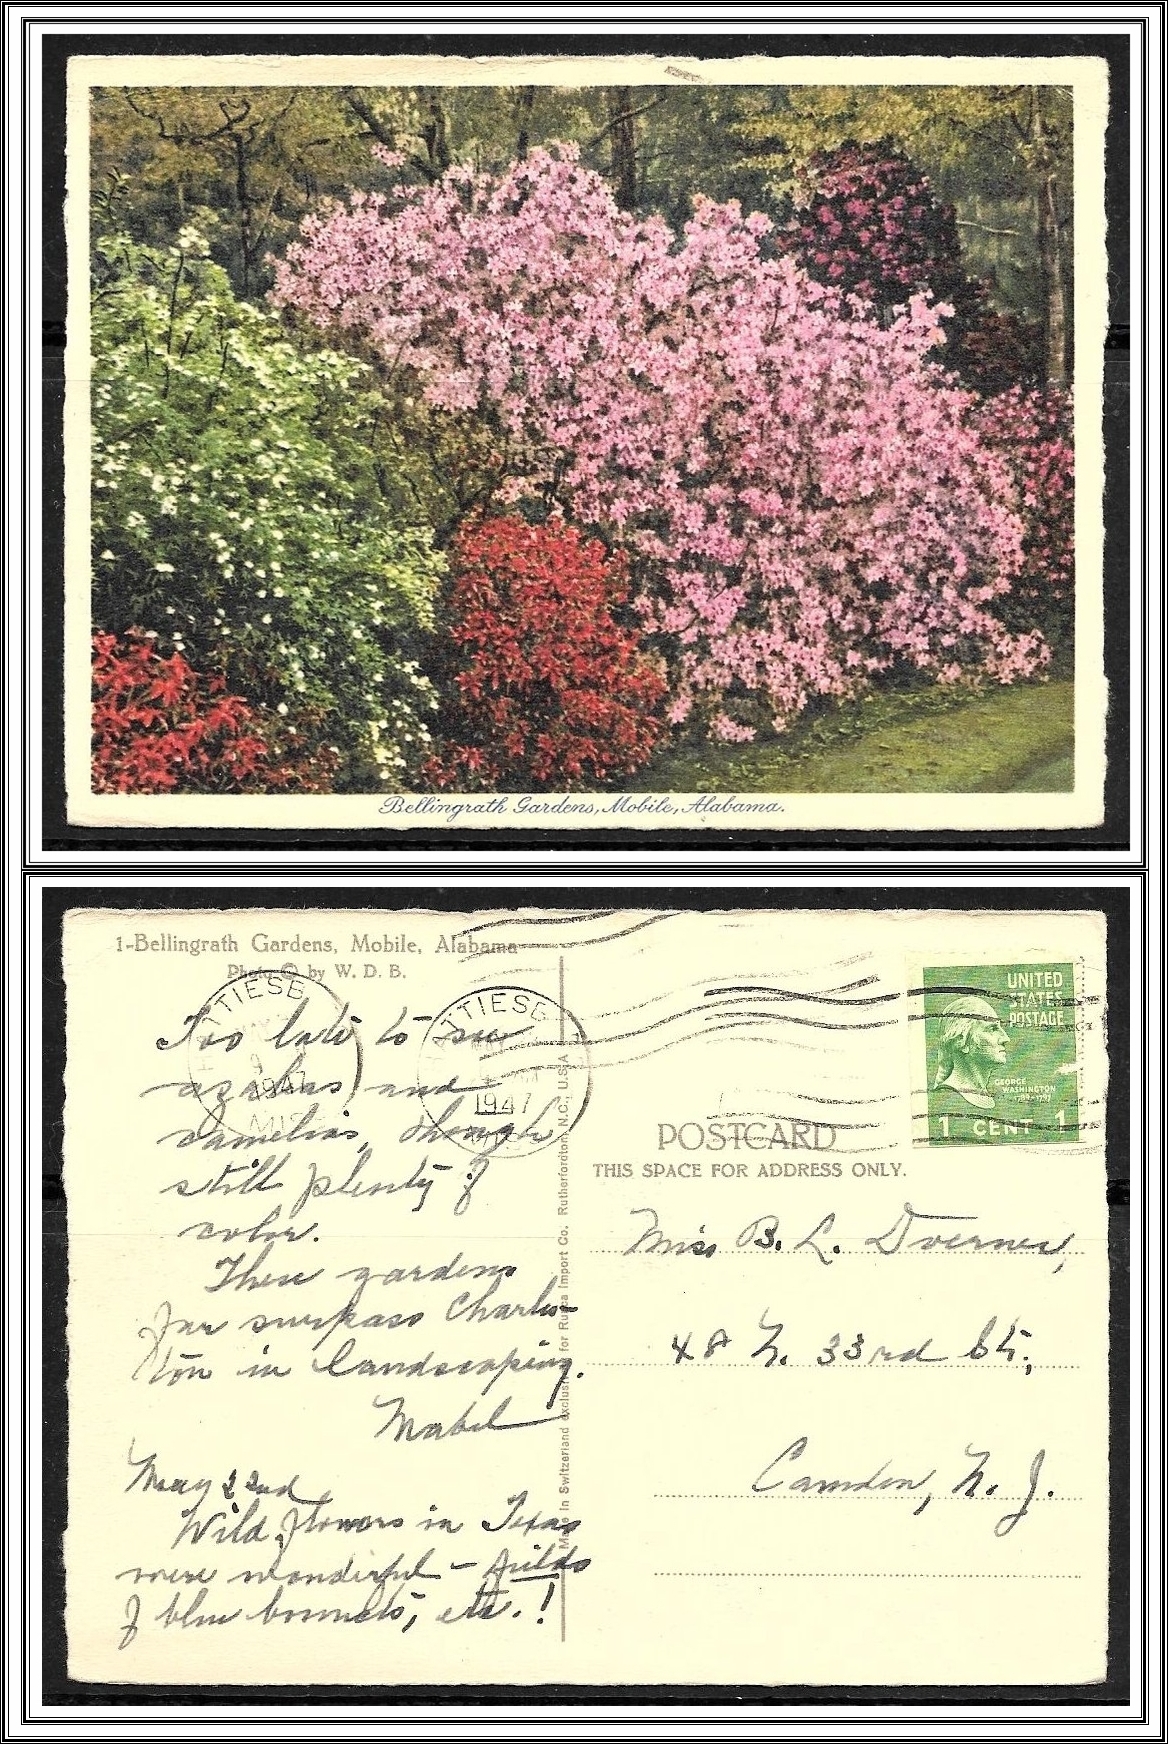 Bellingrath Gardens, Mobile, Alabama.
1-Bellingrath Gardens, Mobile, Alabama
Photo © by W. D. B.
HATTIESB
1947
MISS
ATTIESB
1947
Too late to see
azaleas and
camelias, though
still plenty of
color.
These gardens
far surpass Charles-
ton in landscaping.
Mabel
May 22nd
Wild flowers in Texas
were wonderful – fields
of blue bonnets, etc.!
Made in Switzerland exclusively for Rutica Import Co. Rutherfordton, N.C., U.S.A.
UNITED
STATES
POSTAGE
GEORGE
WASHINGTON
1789-1797
1 CENT 1
POSTCARD
THIS SPACE FOR ADDRESS ONLY.
Miss B. L. Doerner,
48 N. 33rd St.,
Camden, N. J.